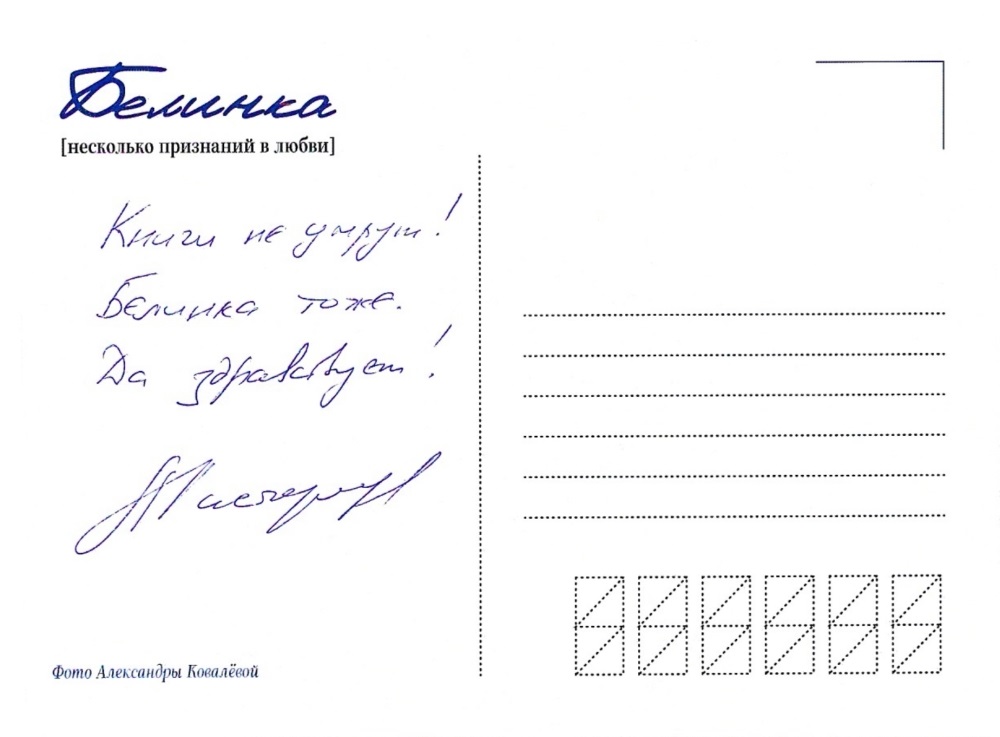 Белинка
[несколько признаний в любви]
Книги не умрут!
Белинка тоже.
Да здравствует!
Фото Александры Ковалёвой